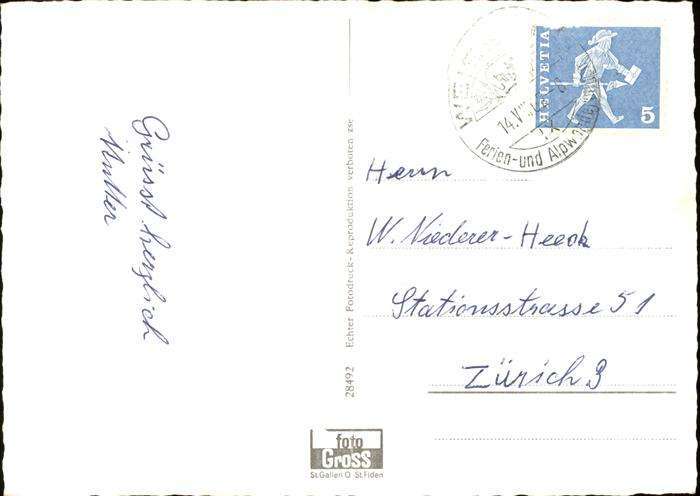 Grüsst herzlich
Mutter
Echter Fotodruck-Reproduktion verboten gse
28492
foto
Gross
St.Gallen O St.Fiden
HELVETIA
5
14.V
Ferien- und
Herrn
W. Niederer-Heeck
Stationsstrasse 51
Zürich 3